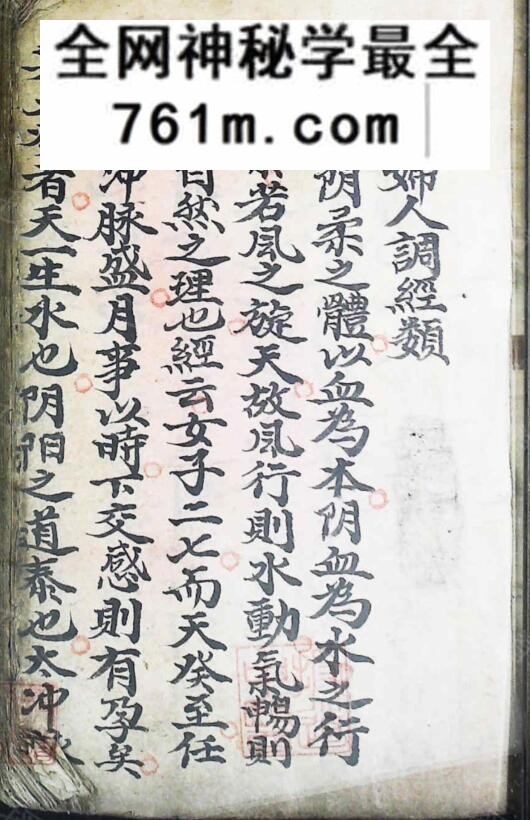 全网神秘学最全
761m.com
婦人調經類
阴柔之體以血為本阴血為水之行
若風之旋天故風行則水動氣暢則
自然之理也經云女子二七而天癸至任
冲脉盛月事以時下交感則有孕矣
者天一生水也阴阳之道泰也太冲